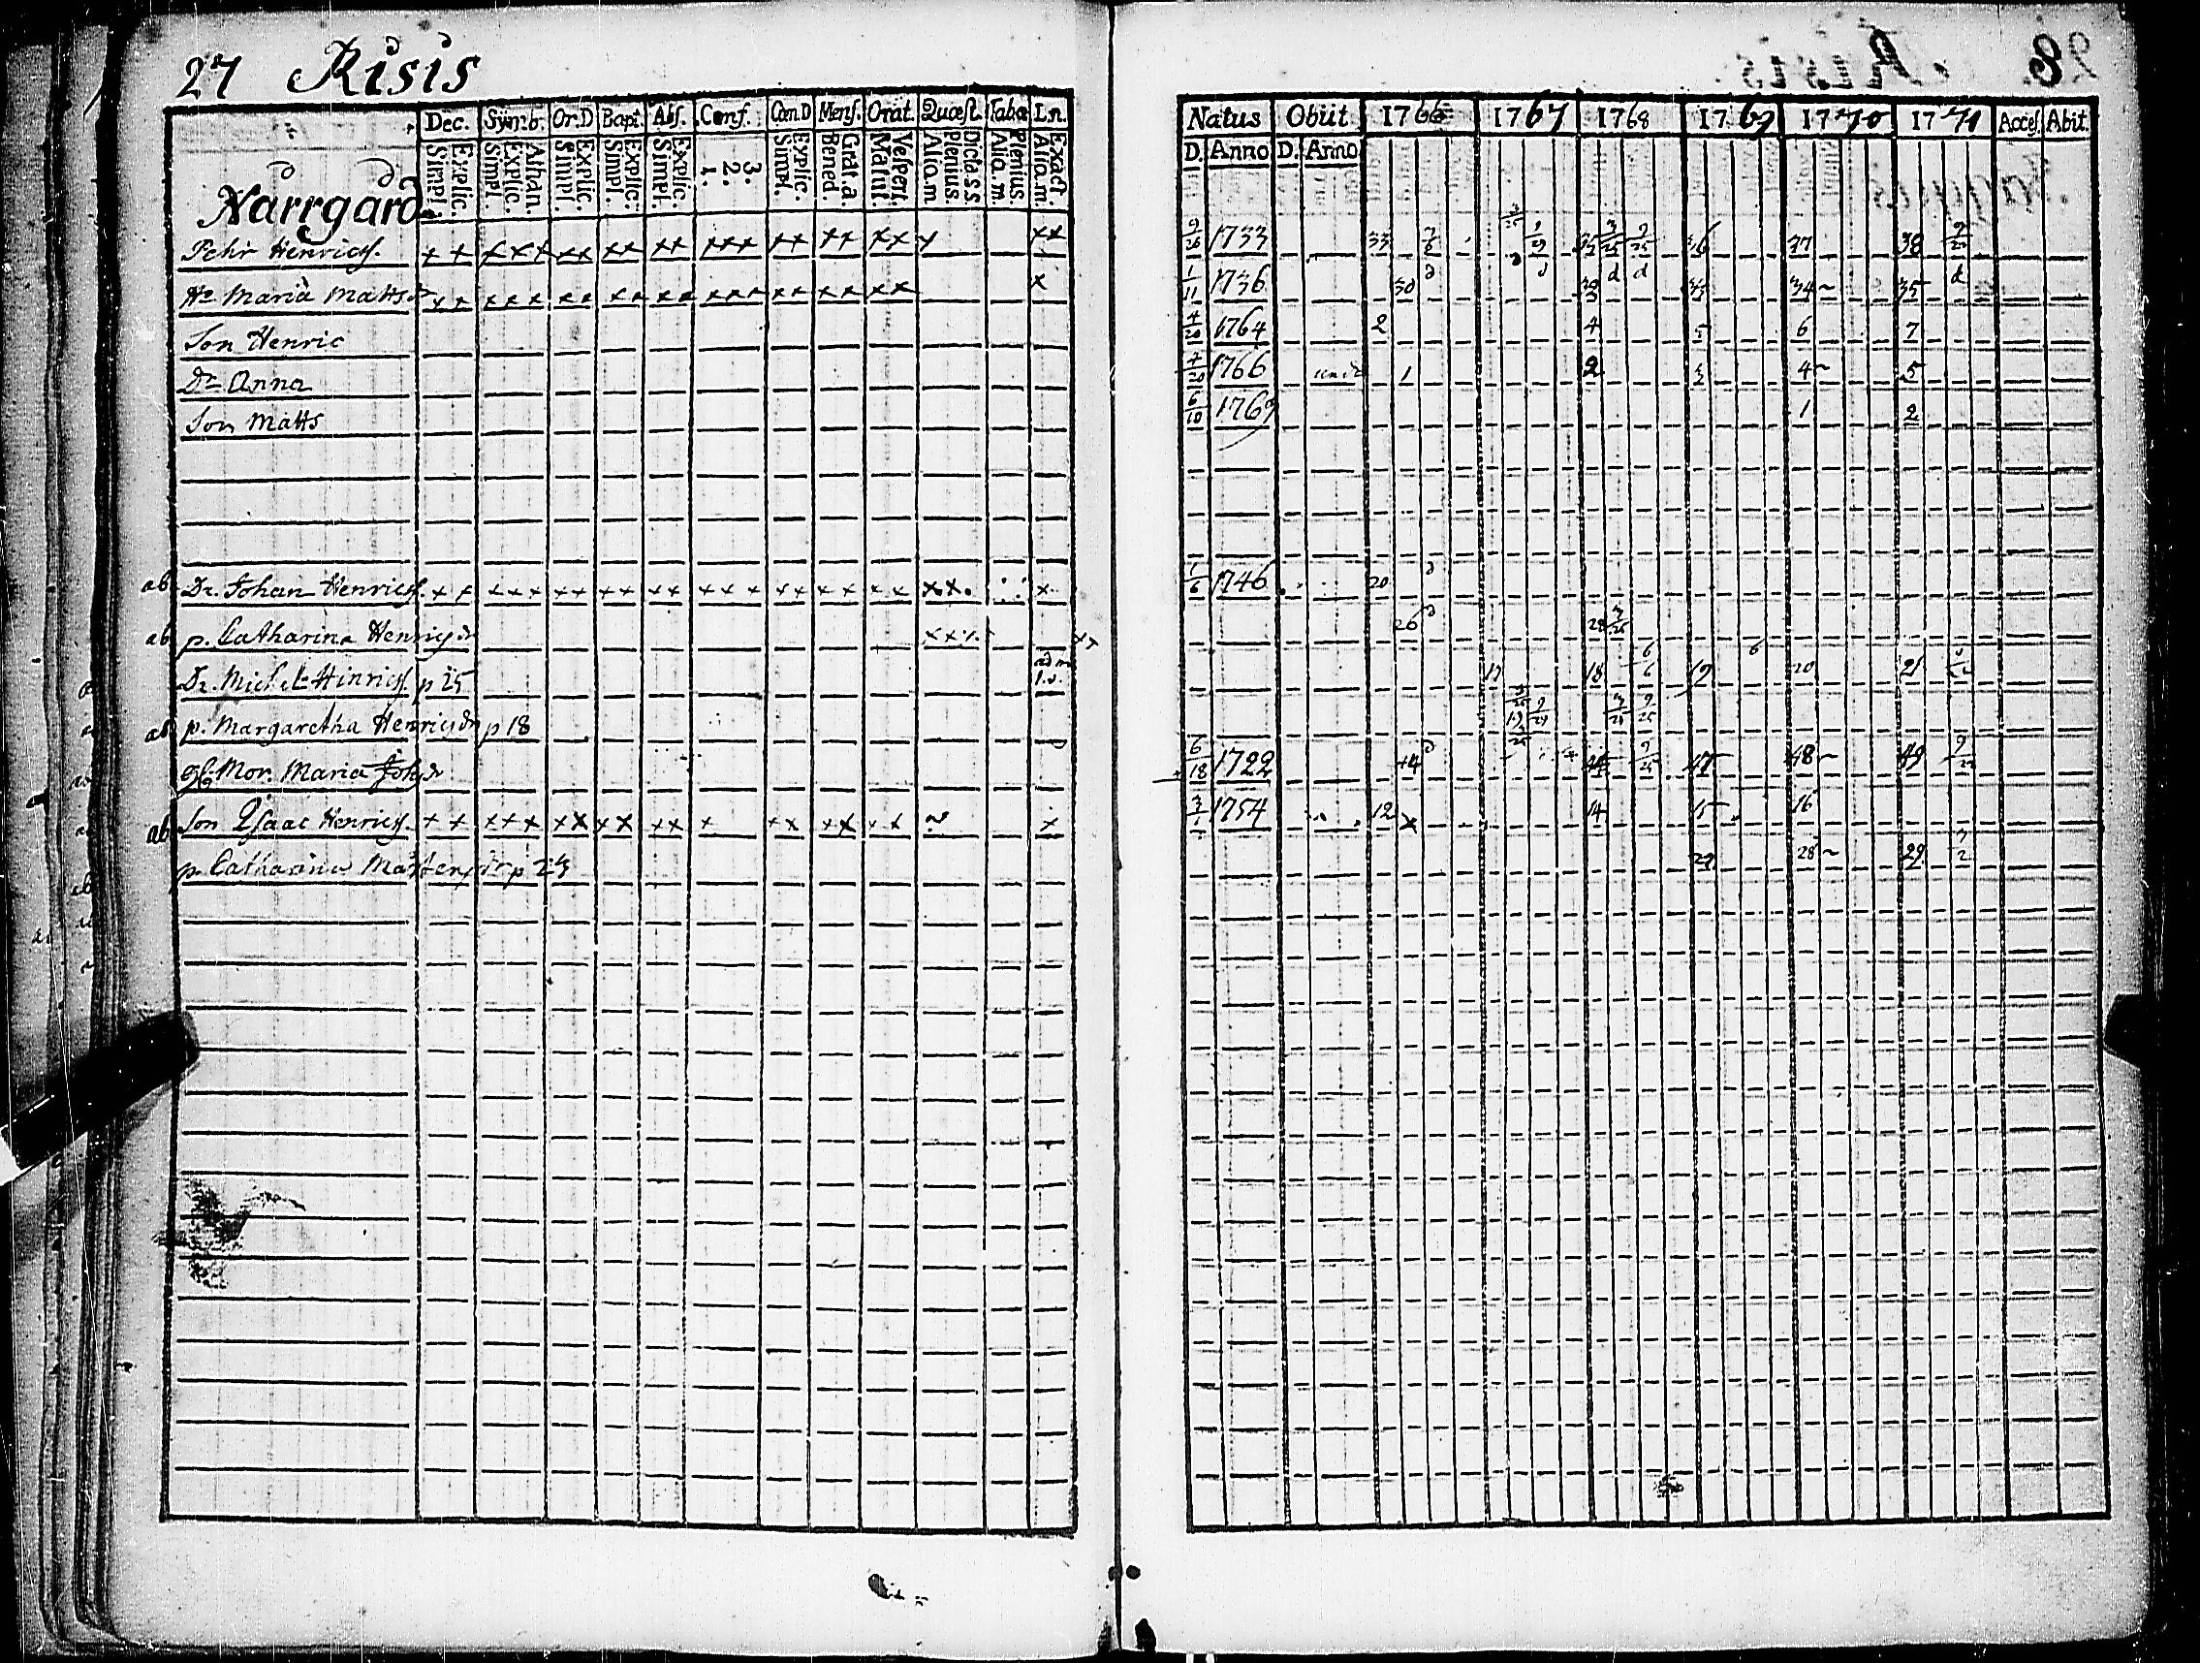 27 Risis
Dec. Symb. Or.D Bapt. Abs. Conf. Cœn.D Mens. Orat. Quæst. Taba Ln.
Explic. Simpl. Athan. Explic. Simpl. Explic. Simpl. Explic. Simpl. Explic. Simpl. 3. 2. 1. Explic. Simpl. Grat.a. Bened. Vespert. Matut. Dicta SS Plenius. Aliq.m. Plenius Aliq.m. Exact. Aliq.m.
Närrgård
Pehr Henricss. x x x x x x x x x x x x x x x x x x x x x x x x
Hu Maria Matts dr x x x x x x x x x x x x x x x x x x x x x
Son Henric
Dr Anna
Son Matts
ab Dr. Johan Henricss. x x x x x x x x x x x x x x x x x x x x x x. x
ab p. Catharina Henricsdr
Dr. Michel Hinricss. p 25
ab p. Margaretha Henricsdr p 18
gl. Mor. Maria Joh.dr
ab Son Isaac Henricss. x x x x x x x x x x x x x x x x x x
p. Catharina Mårtensdr p 23
Natus Obiit 1766 1767 1768 1769 1770 1771 Acces. Abit.
D. Anno D. Anno
9/26 1733 33 36 37 38
1/11 1736 30 34 35
4/20 1764 2 4 5 6 7
7/20 1766 1 2 3 4 5
6/10 1769 1 2
1/6 1746 20
26 28
17 18 19 20 21
6/18 1722 44 47 48 49
3/1 1754 12 x 14 15 16
28 29